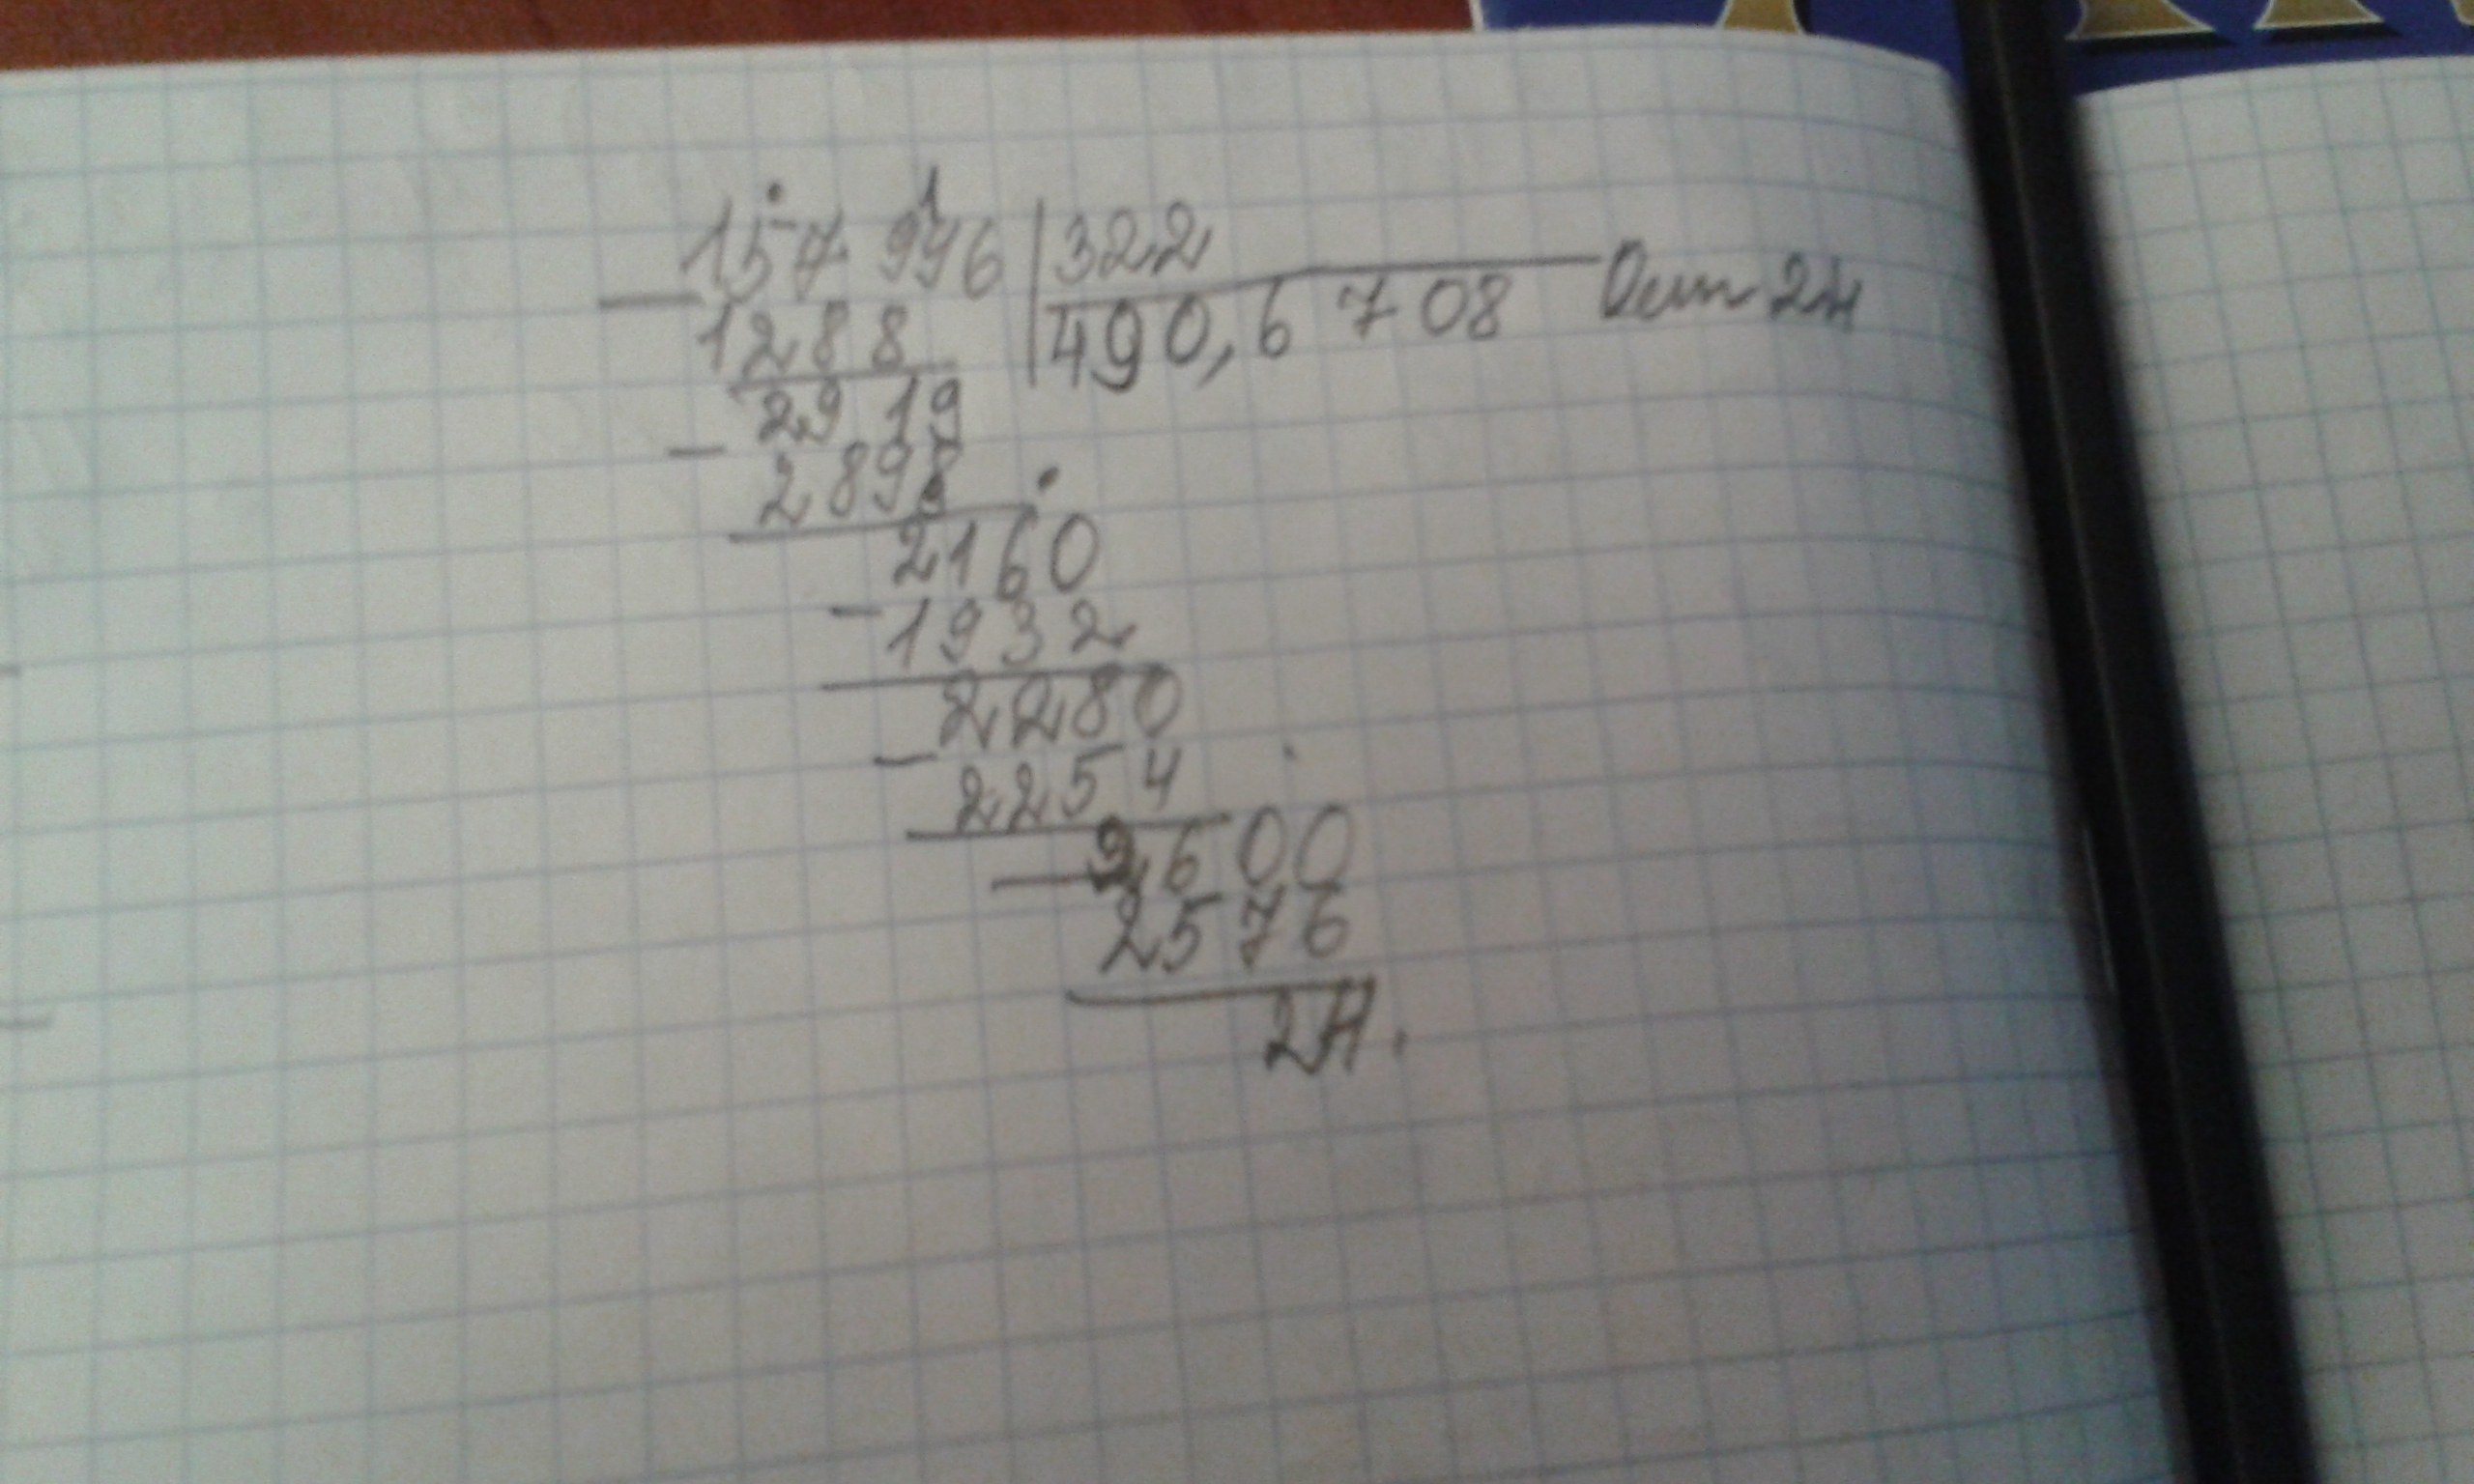 157 996 | 322
− 1288 | 490,6708 Ост 24
2919
− 2898
2160
− 1932
2280
− 2254
− 2600
2576
24.